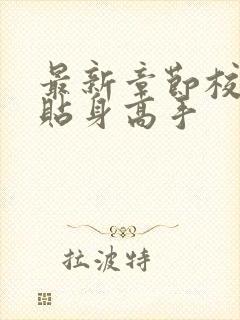 最新章节校
贴身高手
拉波特